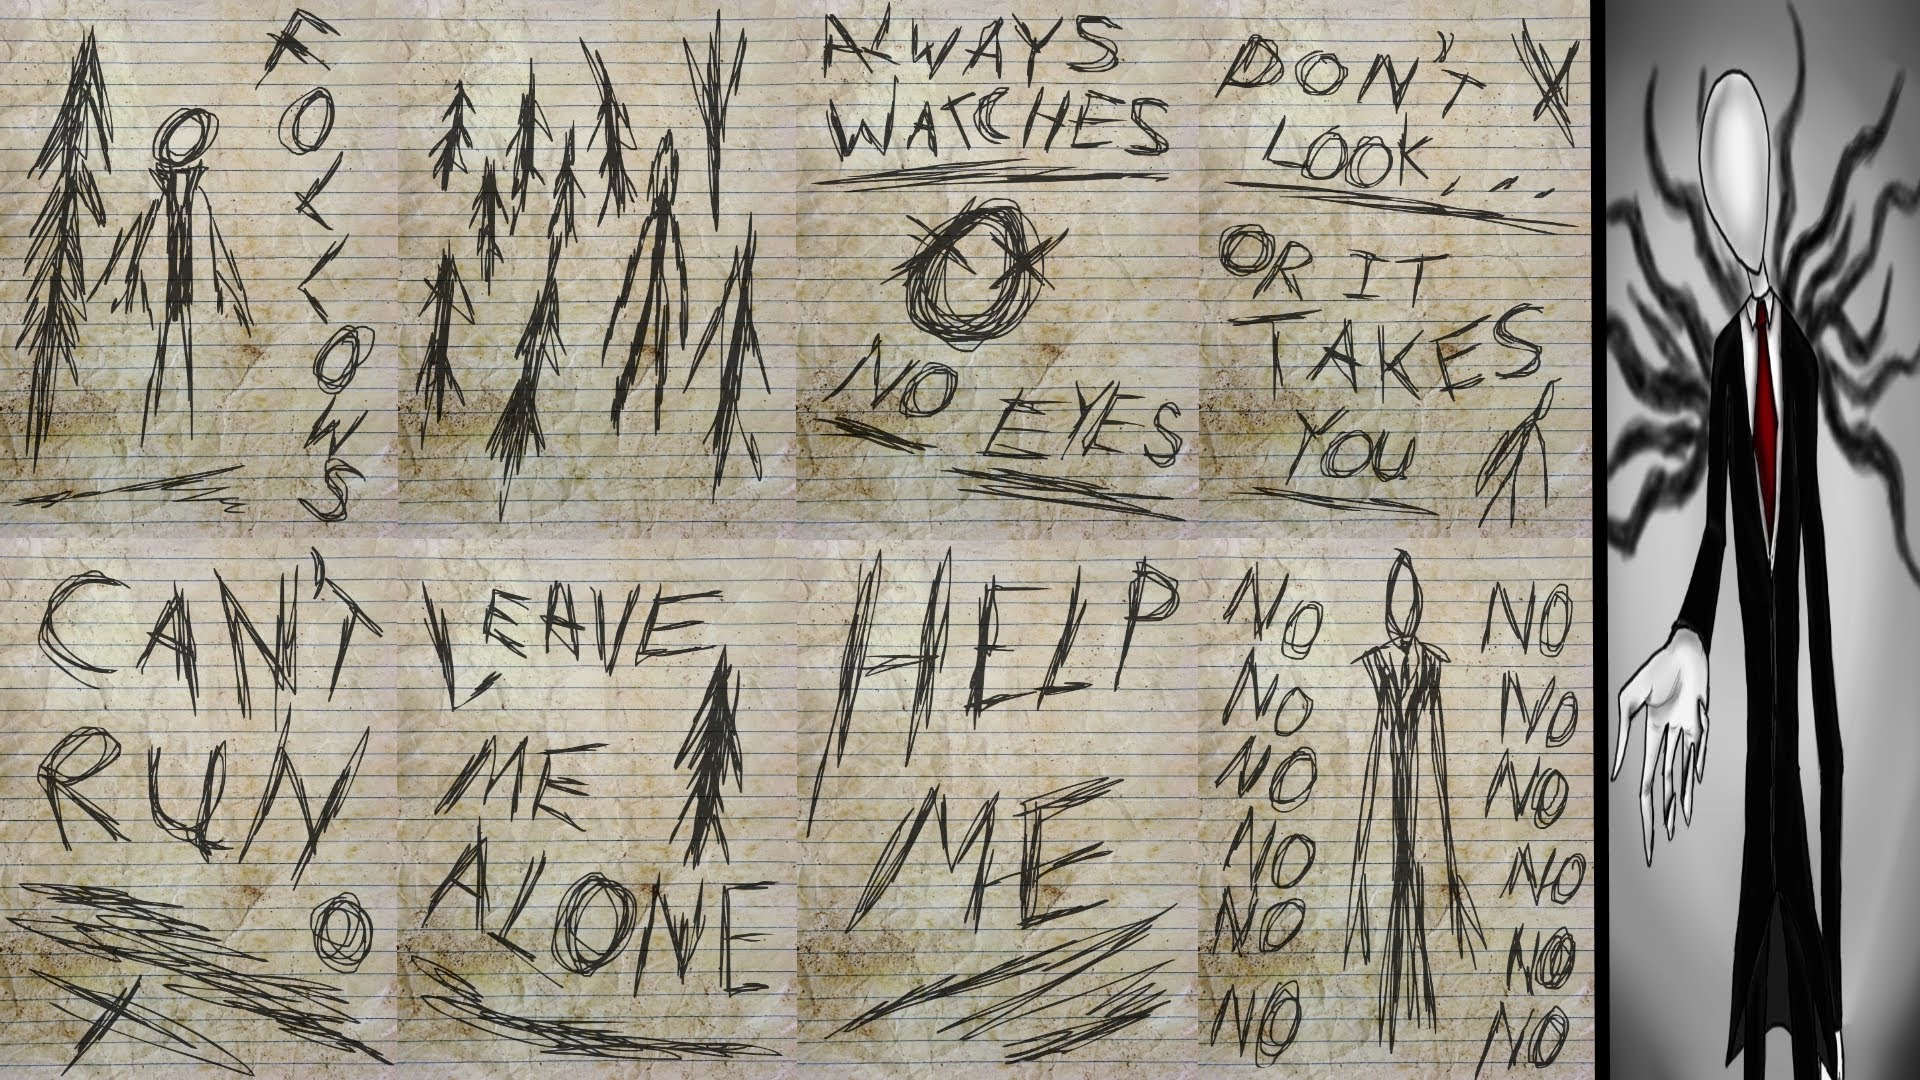 FOLLOWS
ALWAYS
WATCHES
NO
EYES
DON'T
LOOK...
OR IT
TAKES
YOU
CAN'T
RUN
LEAVE
ME
ALONE
HELP
ME
NO NO
NO NO
NO NO
NO NO
NO NO
NO NO